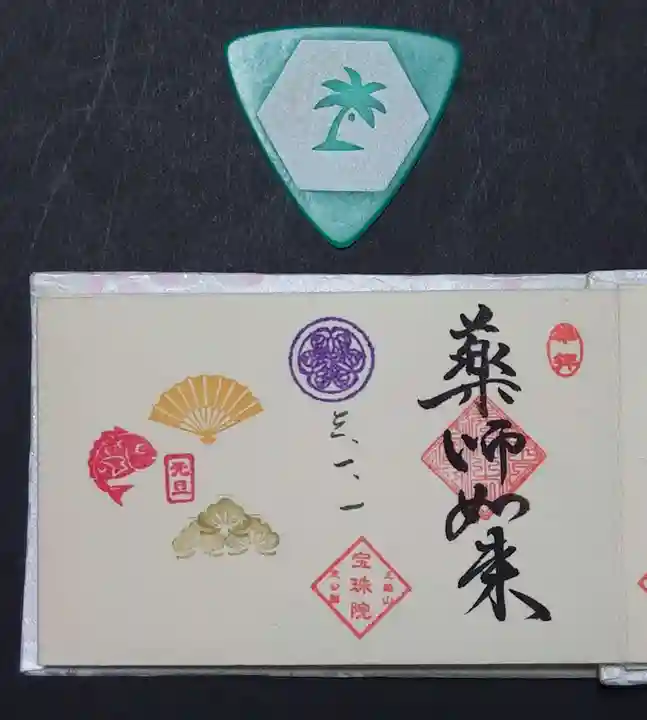 奉拝
薬師如来
三、一、一
宝珠院
元旦